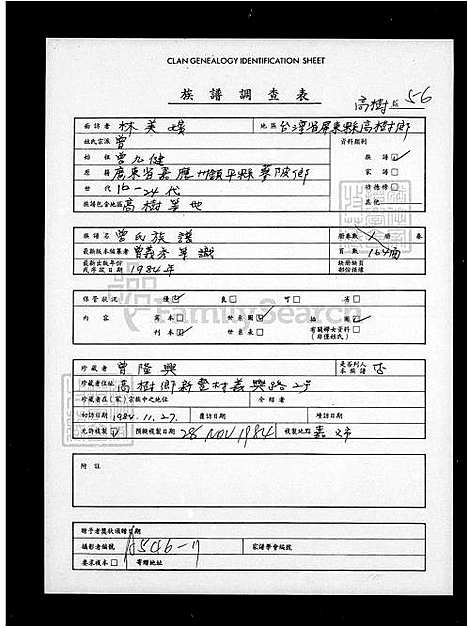 CLAN GENEALOGY IDENTIFICATION SHEET
族譜調查表
高樹 56
訪者 林美
地區 台灣省屏東縣高樹鄉
姓氏宗派 曾
資料類別
始祖 曾九健
族譜 ☑
原籍 廣東省嘉應州鎮平縣
家譜 □
世代 16-24代
祈禱榜 □
族譜包含地區 高樹等地
其他
族譜名 曾氏族譜
冊卷數 1 冊 卷
最新版本編纂者 曾義
頁數 164
最新出版年份或序跋日期 1984年
缺冊缺頁部份描樓
保管狀況 優 ☑ 良 □ 可 □ 劣 □
內容 寫本 □ 世系圖 ☑ 插圖 ☑
刊本 ☑ 世系表 □ 有關婦女資料 □
(非僅姓氏)
珍藏者 曾隆興
是否列入本族譜 否
珍藏者住址 高樹鄉新豐村義興路2号
珍藏者在(家)宗族中之地位 介紹者
初訪日期 1984.11.27. 覆訪日期 續訪日期
允許複製 預擬複製日期 28 NOV 1984 複製地點 嘉
附註
贈予者獎狀頒贈日期
攝影者編號 A5046-17 家譜學會編號
要求複本 □ 寄贈地址
FamilySearch